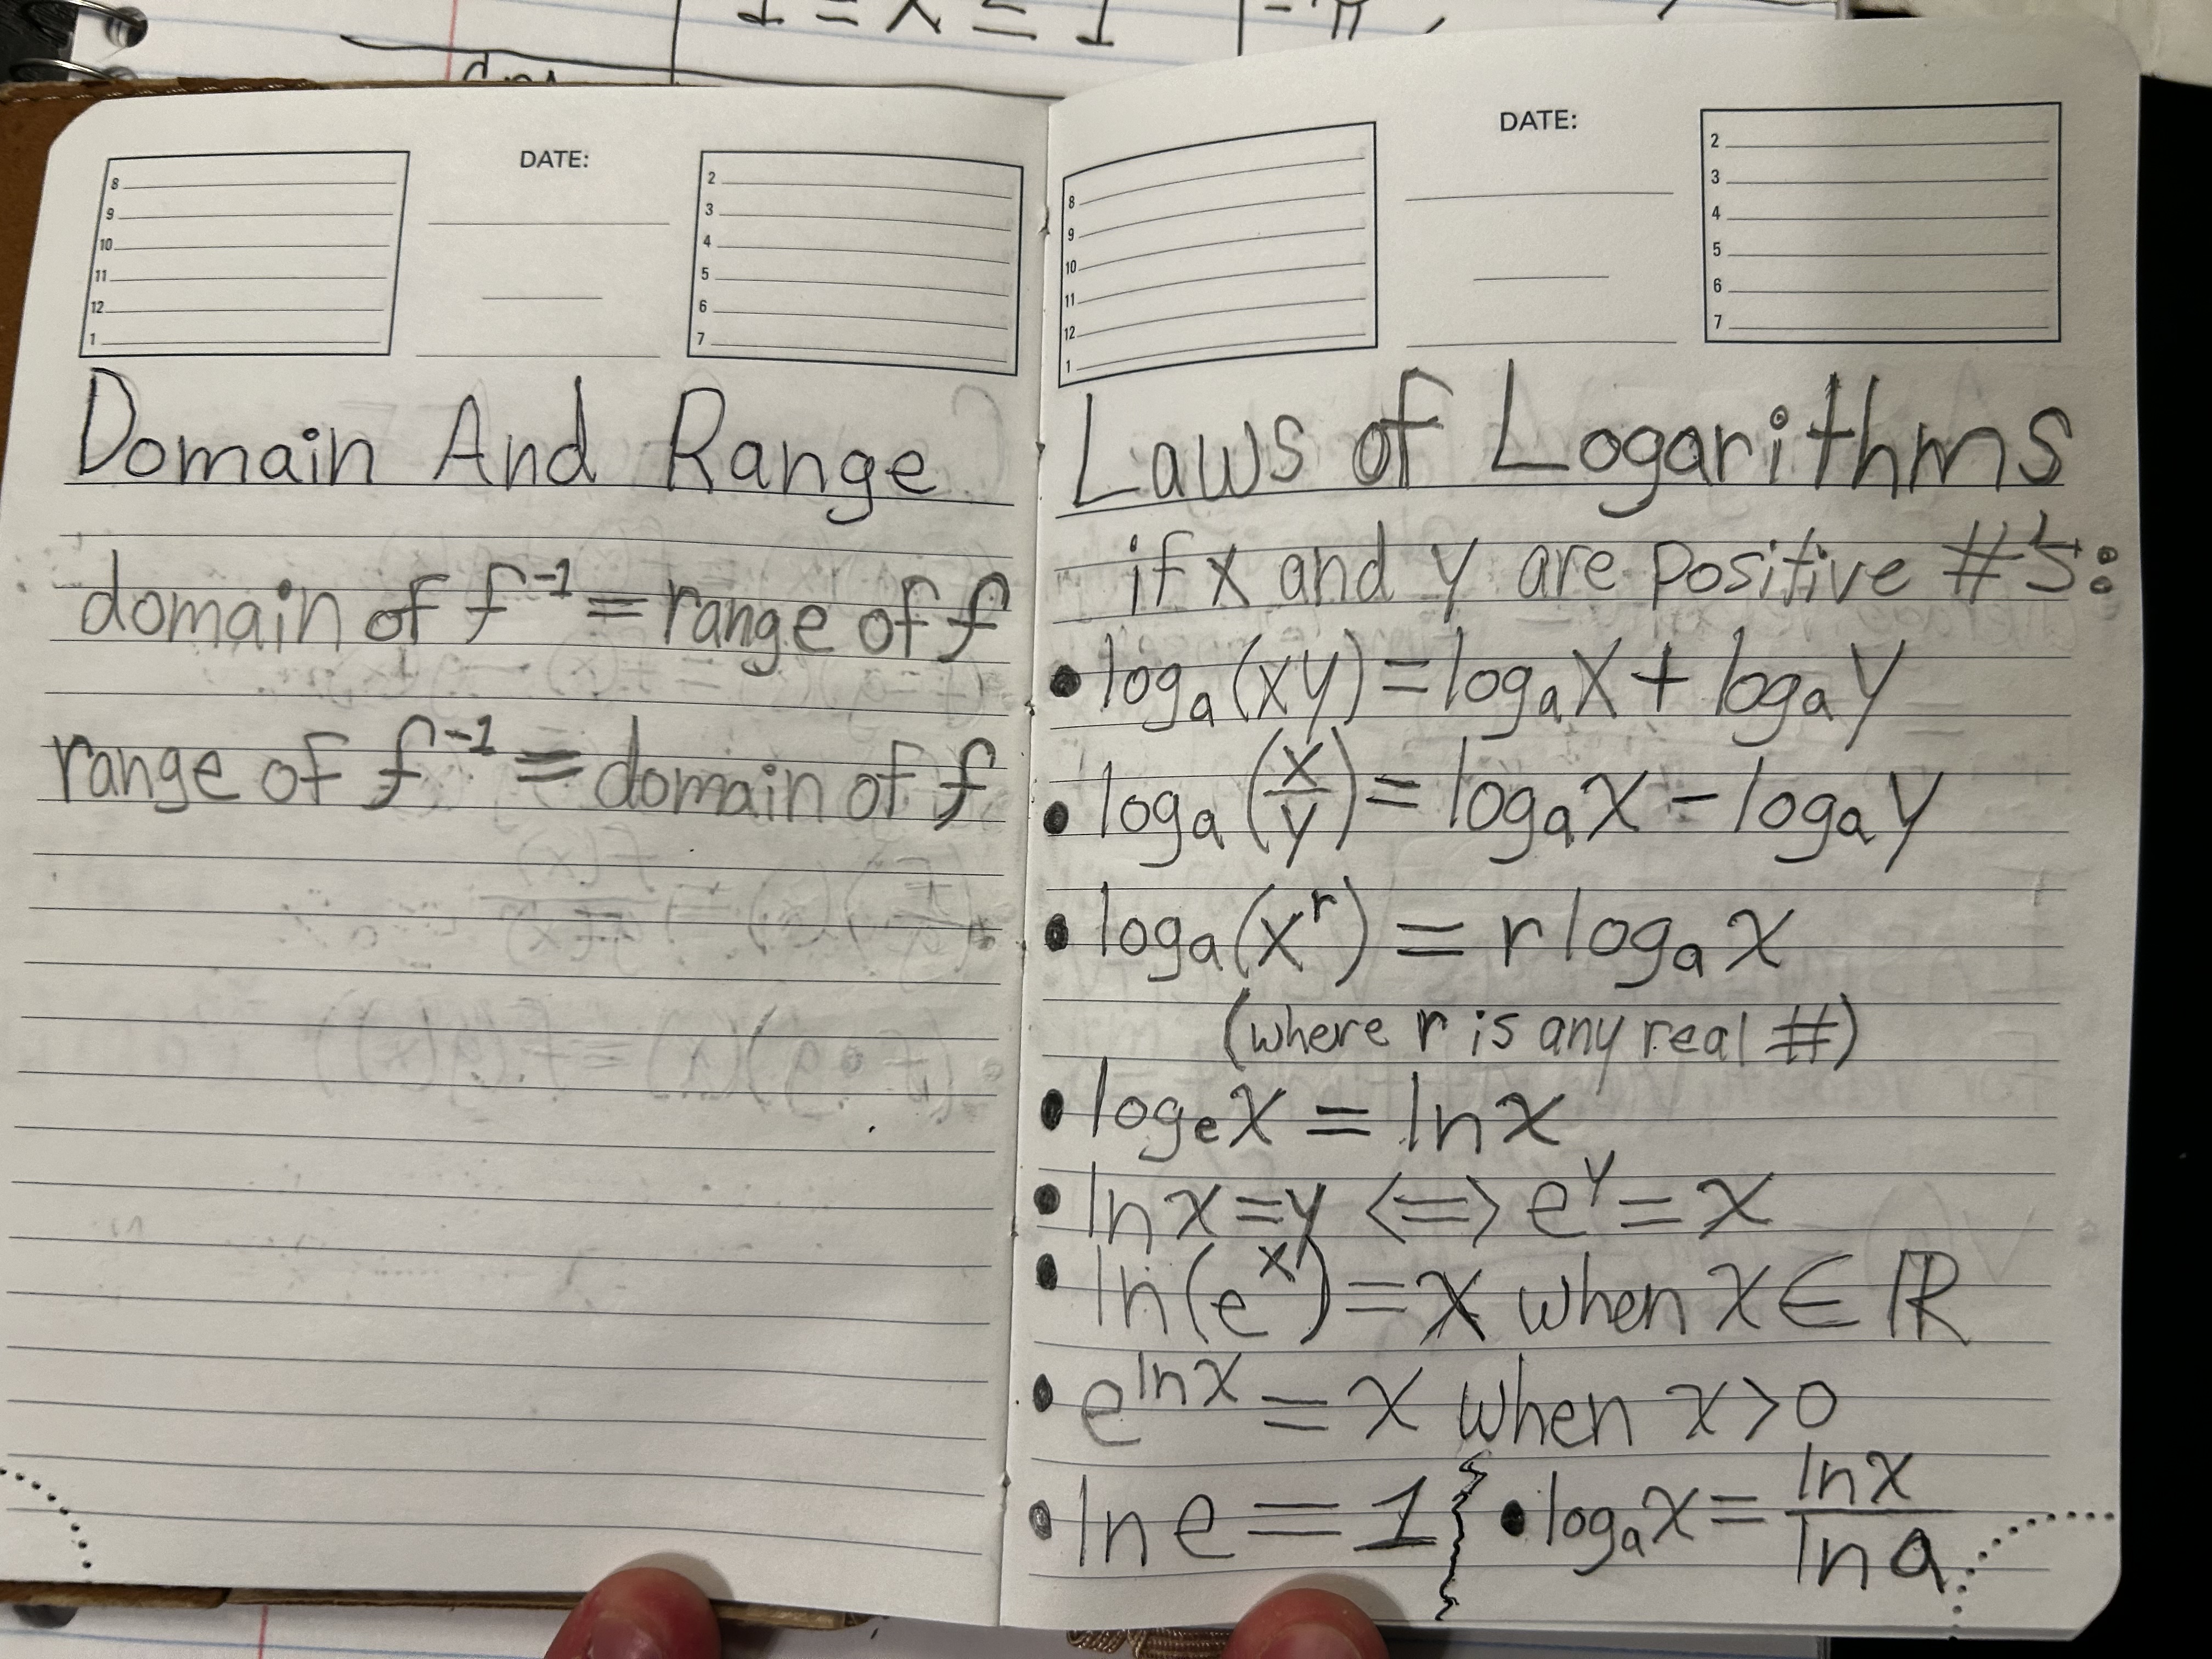 DATE:
8
9
10
11
12
1
2
3
4
5
6
7
Domain And Range
domain of f⁻¹ = range of f
range of f⁻¹ = domain of f
DATE:
8
9
10
11
12
1
2
3
4
5
6
7
Laws of Logarithms
if x and y are positive #'s:
• logₐ(xy) = logₐx + logₐy
• logₐ(x/y) = logₐx - logₐy
• logₐ(xʳ) = r logₐx
(where r is any real #)
• logₑx = ln x
• ln x = y <=> eʸ = x
• ln(eˣ) = x when x ∈ ℝ
• e^(ln x) = x when x > 0
• ln e = 1 • logₐx = ln x / ln a